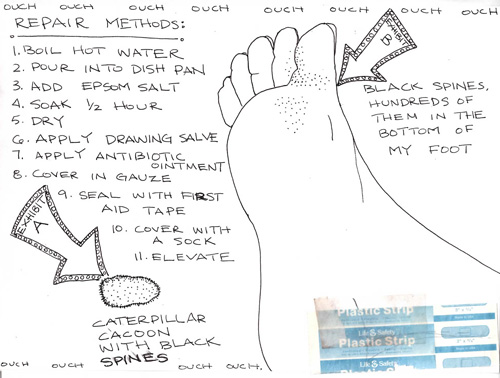 OUCH OUCH OUCH OUCH OUCH OUCH OUCH OUCH
REPAIR METHODS:
1. BOIL HOT WATER
2. POUR INTO DISH PAN
3. ADD EPSOM SALT
4. SOAK 1/2 HOUR
5. DRY
6. APPLY DRAWING SALVE
7. APPLY ANTIBIOTIC
OINTMENT
8. COVER IN GAUZE
9. SEAL WITH FIRST
AID TAPE
10. COVER WITH
A SOCK
11. ELEVATE
EXHIBIT
B
BLACK SPINES,
HUNDREDS OF
THEM IN THE
BOTTOM OF
MY FOOT
EXHIBIT
A
CATERPILLAR
CACOON
WITH BLACK
SPINES
Plastic Strip
Life & Safety
Plastic Strip
Life & Safety
OUCH OUCH OUCH OUCH.